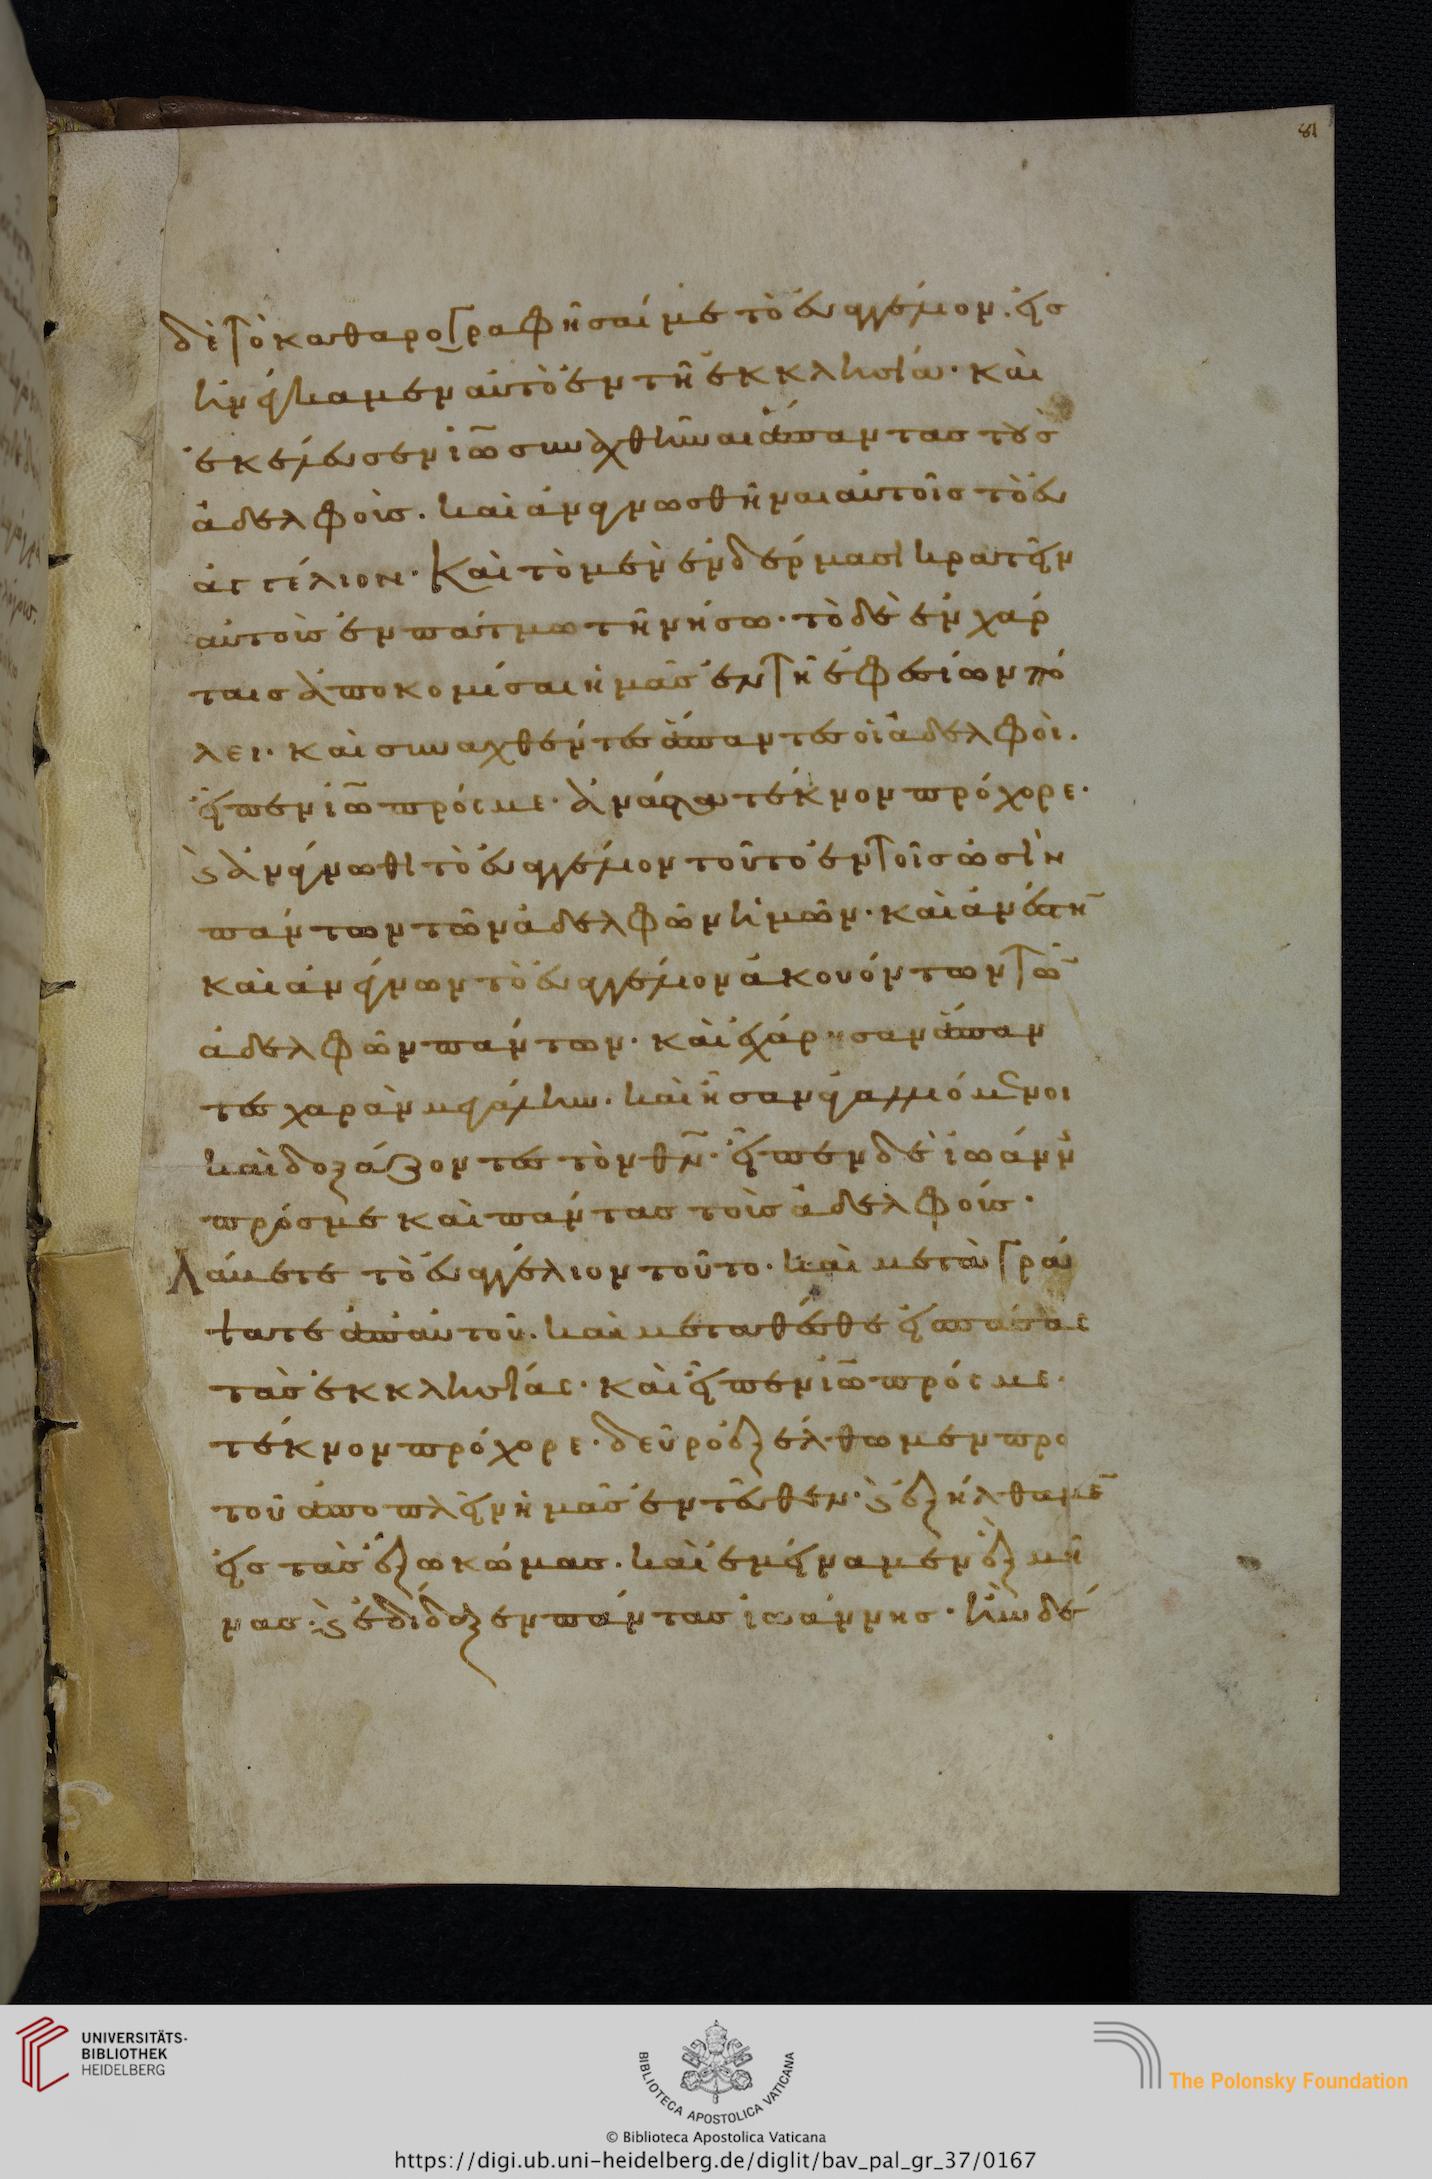 81
δὲ τὸ καθαρογραφῆσαί με τὸ εὐαγγέλιον. εἰσ
ηνείκαμεν αὐτὸ ἐν τῆ ἐκκλησία. καὶ
ἐκέλευσεν ἰω̅ συναχθῆναι ἅπαντας τοὺς
ἀδελφοὺς. καὶ ἀναγνωσθῆναι αὐτοῖς τὸ εὐ
αγγέλιον. Καὶ τὸ μὲν ἐν δέρμασι κρατεῖν
αὐτοὺς ἐν πάτμω τῆ νήσω. τὸ δὲ ἐν χάρ
ταις ἀποκομίσαι ἡμᾶς ἐν τῆ ἐφεσίων πό
λει. καὶ συναχθέντες ἅπαντες οἱ ἀδελφοὶ.
εἶπεν ἰω̅ πρός με. ἀνάστα τέκνον πρόχορε.
ϗ ἀνάγνωθι τὸ εὐαγγέλιον τοῦτο ἐν τοῖς ὠσὶν
πάντων τῶν ἀδελφῶν ἡμῶν. καὶ ἀνέστη̅
καὶ ἀνέγνων τὸ εὐαγγέλιον ἀκουόντων τῶ̅
ἀδελφῶν πάντων. καὶ ἐχάρησαν ἅπαν
τες χαρὰν μεγάλην. καὶ ἦσαν ἀγαλλιόμενοι
καὶ δοξάζοντες τὸν θν̅. εἶπεν δὲ ἰωάνν
πρός με καὶ πάντας τοὺς ἀδελφούς.
Λάβετε τὸ εὐαγγέλιον τοῦτο. καὶ μεταγρά
ψατε ἀπ' αὐτοῦ. καὶ μεταθέσθε εἰς πάσας
τὰς ἐκκλησίας. καὶ εἶπεν ἰω̅ πρός με.
τέκνον πρόχορε. δεῦρο ἐξέλθωμεν πρὸ
τοῦ ἀποπλεῖν ἡμᾶς ἐντεῦθεν. ϗ ἐξήλθαμε̅
εἰς τὰς ἔξω κώμας. καὶ ἐμείναμεν ἓξ μῆ
νας. ϗ ἐδίδαξεν πάντας ἰωάννης. ἦν δέ
UNIVERSITÄTS-
BIBLIOTHEK
HEIDELBERG
BIBLIOTECA APOSTOLICA VATICANA
The Polonsky Foundation
© Biblioteca Apostolica Vaticana
https://digi.ub.uni-heidelberg.de/diglit/bav_pal_gr_37/0167